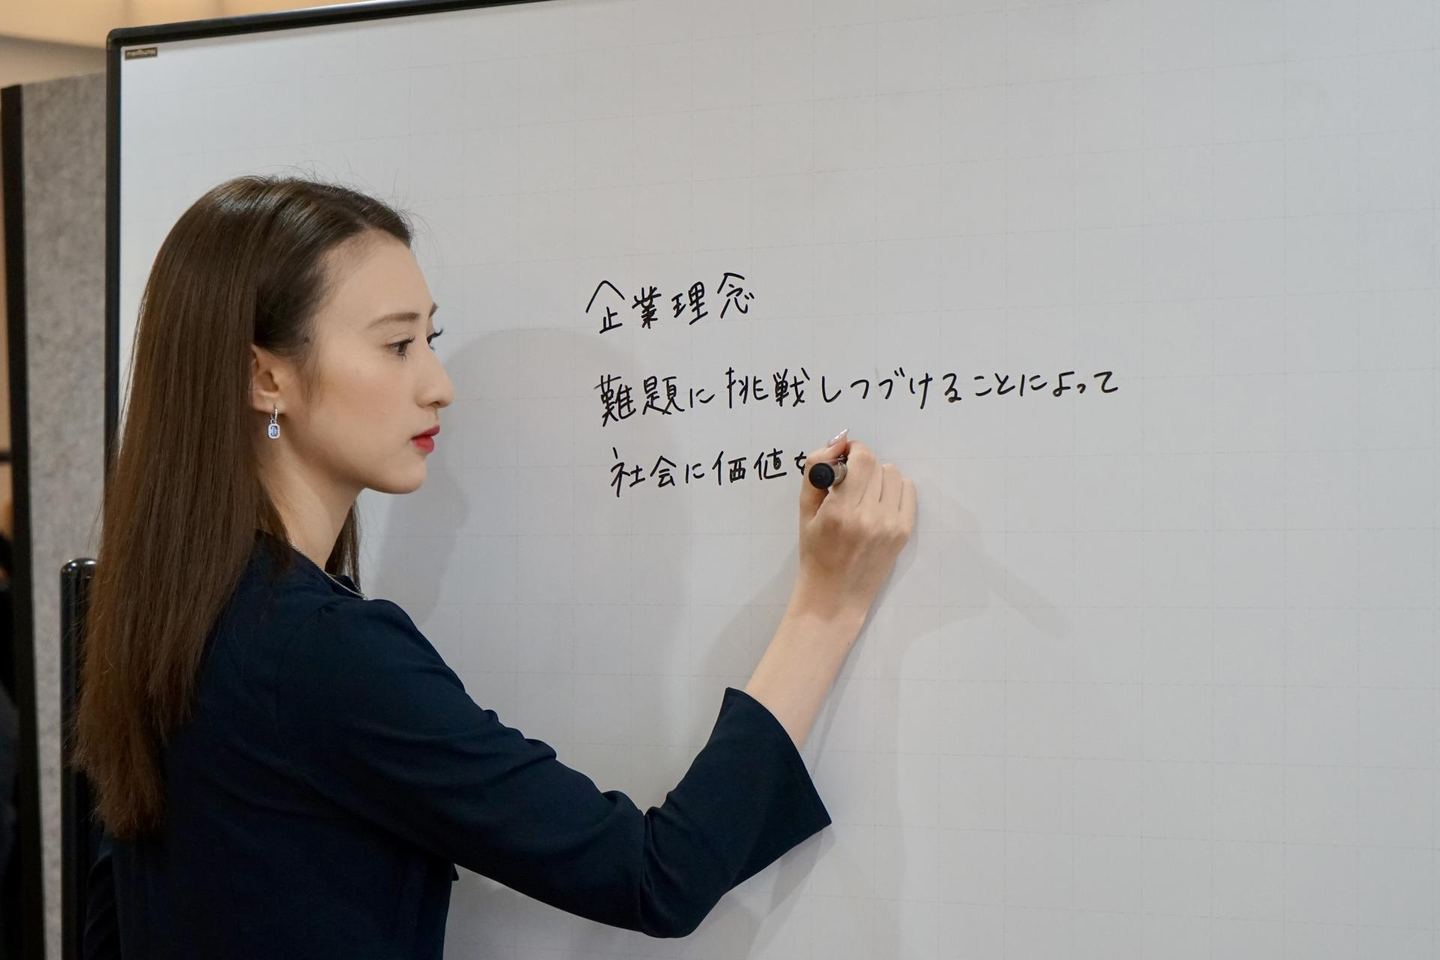 企業理念
難題に挑戦しつづけることによって
社会に価値を